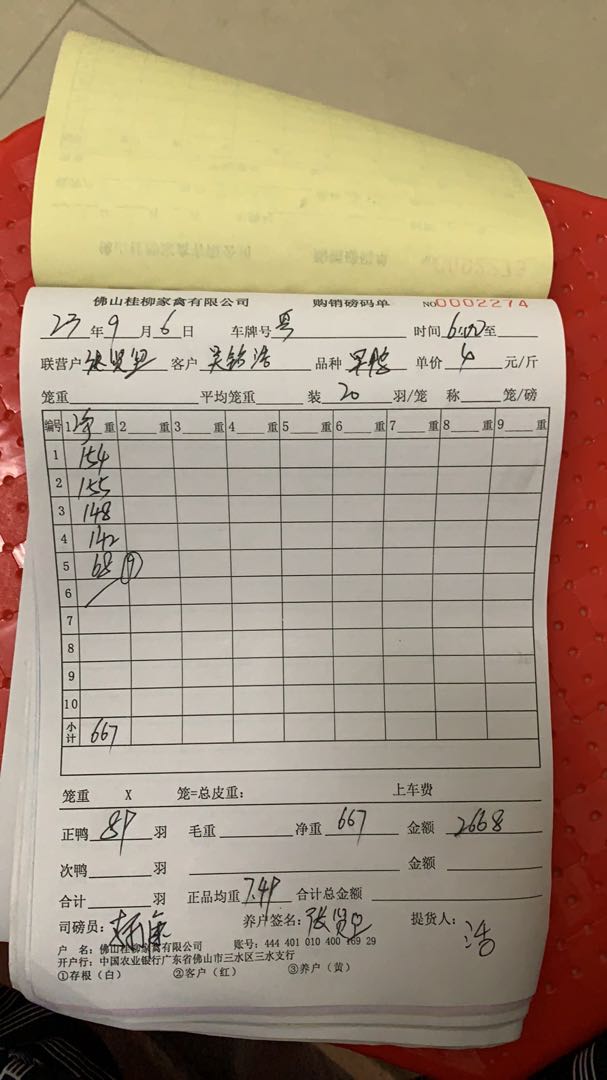 佛山桂柳家禽有限公司 购销磅码单 NO0002274
23年9月6日 车牌号 时间 至
联营户 客户 吴铭浩 品种 单价 4 元/斤
笼重 平均笼重 装 20 羽/笼 称 笼/磅
编号 1净重 2 重 3 重 4 重 5 重 6 重 7 重 8 重 9 重
1 154
2 155
3 148
4 142
5 68 ⑨
6
7
8
9
10
小计 667
笼重 X 笼=总皮重: 上车费
正鸭 89 羽 毛重 净重 667 金额 2668
次鸭 羽 金额
合计 羽 正品均重 7.49 合计总金额
司磅员: 养户签名: 张贤 提货人: 浩
户 名: 佛山桂柳家禽有限公司 账号: 444 401 010 400 169 29
开户行: 中国农业银行广东省佛山市三水区三水支行
①存根(白) ②客户(红) ③养户(黄)